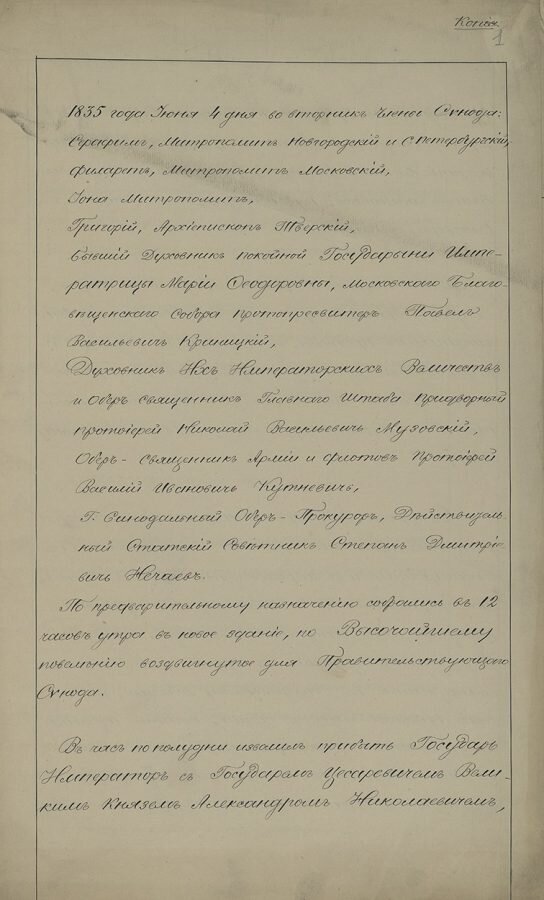 Копія.
1
1835 года Іюня 4 дня во вторникъ Члены Сѵнода:
Серафимъ, Митрополитъ Новгородскій и С. Петербургскій,
Филаретъ, Митрополитъ Московскій,
Іона Митрополитъ,
Григорій, Архіепископъ Тверскій,
бывшій Духовникъ покойной Государыни Импе-
ратрицы Маріи Ѳеодоровны, Московскаго Благо-
вѣщенскаго Собора Протопресвитеръ Павелъ
Васильевичъ Криницкій,
Духовникъ Ихъ Императорскихъ Величествъ
и Оберъ Священникъ Главнаго Штаба Придворный
Протоіерей Николай Васильевичъ Музовскій,
Оберъ-Священникъ Арміи и Флотовъ Протоіерей
Василій Ивановичъ Кутневичъ,
Г. Синодальный Оберъ-Прокуроръ, Дѣйствитель-
ный Статскій Совѣтникъ Степанъ Дмитріе-
вичъ Нечаевъ.
По предварительному назначенію собрались въ 12
часовъ утра въ новое зданіе, по Высочайшему
повелѣнію воздвигнутое для Правительствующаго
Сѵнода.
Въ часъ по полудни изволилъ прибыть Государь
Императоръ съ Государемъ Цесаревичемъ Вели-
кимъ Княземъ Александромъ Николаевичемъ,